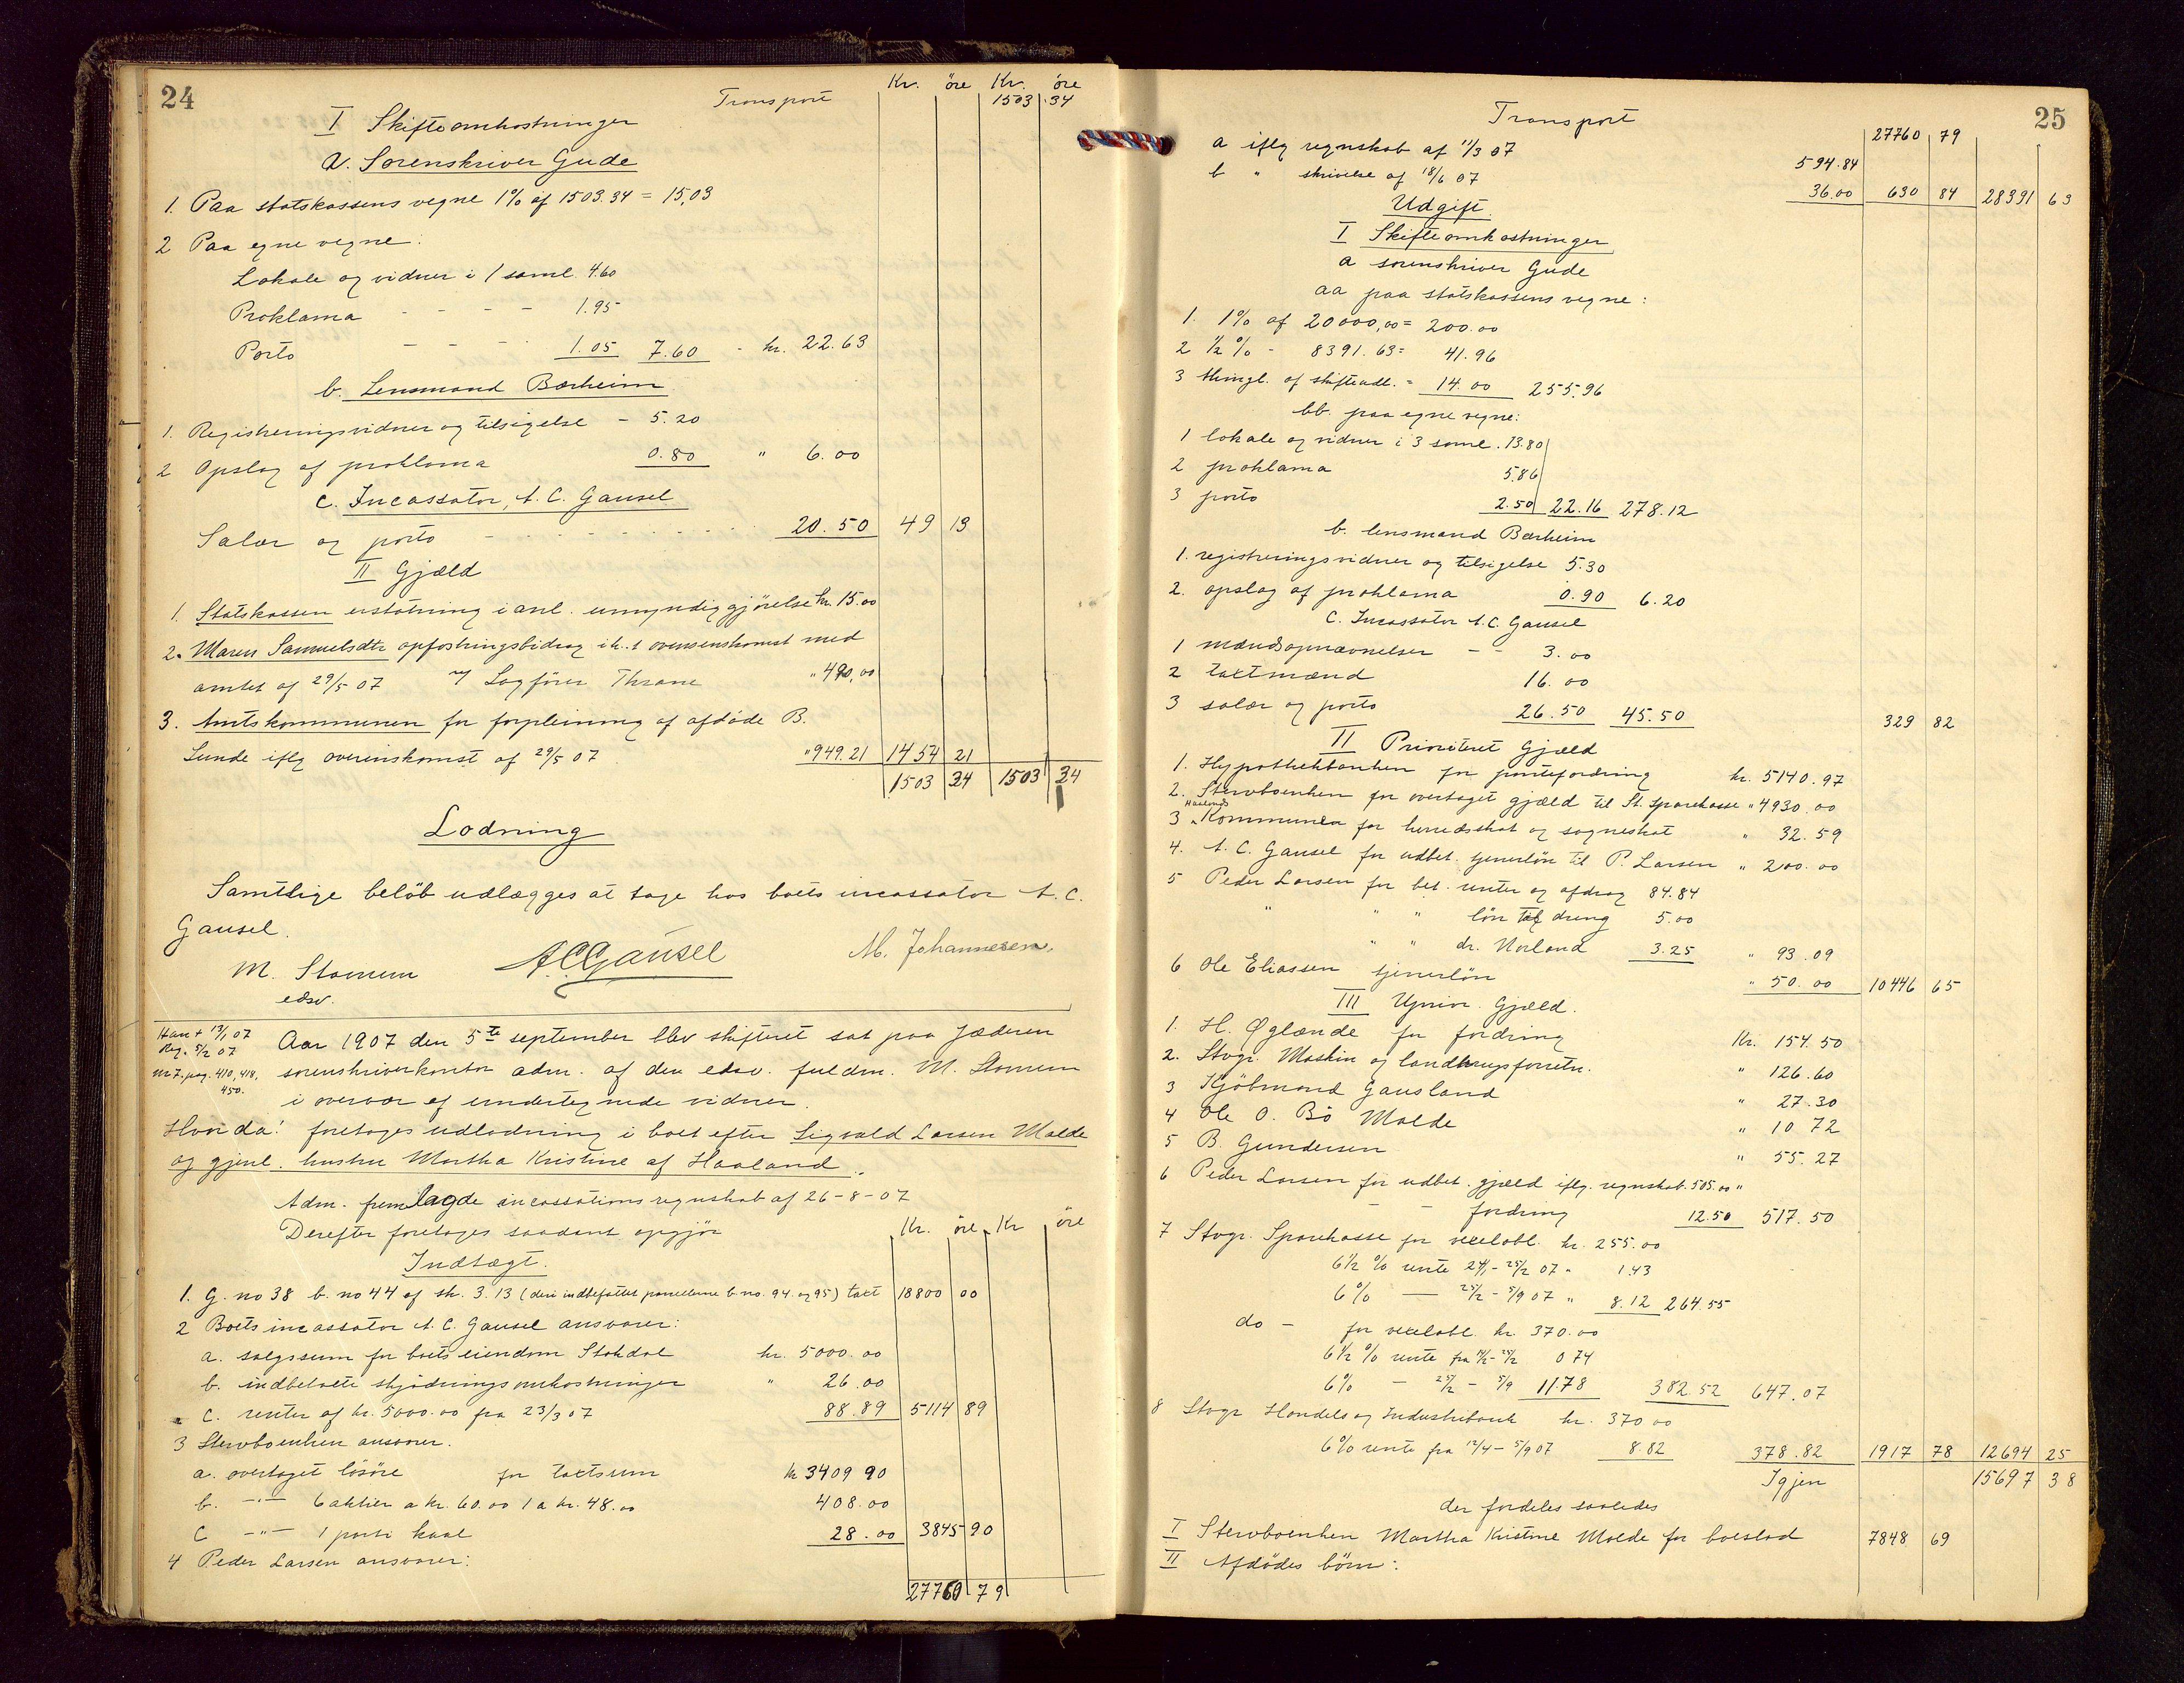 24
Transport
Kr. öre Kr. öre
1503 34
I Skifteomkostninger
a. Sorenskriver Gude
1. Paa statskassens vegne 1% af 1503.34 = 15,03
2 Paa egne vegne:
Lokale og vidner i 1 saml. 4.60
Proklama - - - - 1.95
Porto - - - - 1.05 7.60 - kr. 22.63
b. Lensmand Bærheim
1. Registreringsvidner og tilsigelse - 5.20
2 Opslag af proklama 0.80 " 6.00
c. Incassator, A. C. Gausel
Salær og porto - - - - - - 20.50 49 13
II Gjæld
1. Statskassen erstatning i anl. umyndiggjörelse kr. 15.00
2. Maren Samuelsdtr opfostringsbidrag ih.t overenskomst med
amtet af 29/5 07 v/ Sagförer Thrane " 490,00
3. Amtskommunen for forpleining af afdöde B.
Lunde iflg overenskomst af 29/5 07 " 949.21 1454 21
1503 34 1503 34
Lodning
Samtlige belöb udlægges at tage hos boets incassator A. C.
Gausel.
M. Stamum ACGausel M. Johannesen.
edsv.
Han + 13/1 07
Reg. 5/2 07
nr 7. pag. 410, 418,
450.
Aar 1907 den 5te september blev skifteret sat paa Jæderen
sorenskriverkontor adm. af den edsv. fuldm. M. Stamum
i overvær af undertegnede vidner.
Hvorda! foretoges udlodning i boet efter Sigvald Larsen Malde
og gjenl. hustru Martha Kristine af Haaland.
Adm. fremlagde incassationsregnskab af 26-8-07
Derefter foretoges saadant opgjör
Kr. öre Kr öre
Indtægt.
1. G. no 38 b. no 44 af sk. 3.13 (deri indbefattet parcellerne b. no. 94 og 95) taxt 18800 00
2 Boets incassator A. C. Gausel ansvarer:
a. salgssum for boets eiendom Stokdal kr. 5000.00
b. indbetalte skjödningsomkostninger " 26.00
c. renter af kr. 5000.00 fra 23/3 07 88.89 5114 89
3 Stervboenken ansvarer.
a. overtaget lösöre for taxtsum kr 3409 90
b. -"- 6 aktier a kr. 60.00 1 a kr. 48.00 408.00
c -"- 1 parti kaal 28.00 3845 90
4 Peder Larsen ansvarer:
27760 79
25
Transport
27760 79
a iflg regnskab af 11/3 07 594.84
b " skrivelse af 18/6 07 36.00 630 84 28391 63
Udgift.
I Skifteomkostninger
a sorenskriver Gude
aa paa statskassens vegne:
1. 1% af 20000,00 = 200.00
2 1/2% - 8391.63 = 41.96
3 thingl. af skifteudl. = 14.00 255.96
bb. paa egne vegne:
1 lokale og vidner i 3 saml. 13.80
2 proklama 5.86
3 porto 2.50 22.16 278.12
b. lensmand Bærheim
1. registreringsvidner og tilsigelse 5.30
2. opslag af proklama 0.90 6.20
c. Incassator A. C. Gausel
1 mandsopnævnelser - - 3.00
2 taxtmænd 16.00
3 salær og porto 26.50 45.50 329 82
II Prioritert Gjæld
1. Hypothekbanken for pantefordring kr. 5140.97
2. Stervboenken for overtaget gjæld til St. sparekasse " 4930.00
3 Haalands Kommunen for herredsskat og sogneskat " 32.59
4. A. C. Gausel for udbet. tjenerlön til P. Larsen " 200.00
5 Peder Larsen for bet. renter og afdrag 84.84
" " " lön til dreng 5.00
" " dr. Norland 3.25 " 93.09
6 Ole Eliassen tjenerlön " 50.00 10446 65
III Uprior. Gjæld.
1. H. Øglænde for fordring Kr. 154.50
2. Stvgr. Maskin og landbrugsforretn. " 126.60
3 Kjöbmand Gausland " 27.30
4 Ole O. Bö Malde " 10 72
5 B. Gundersen " 55.27
6 Peder Larsen for udbet. gjæld iflg. regnskab. 505.00 "
- - fordring 12.50 517.50
7 Stvgr. Sparekasse for vexelobl. kr. 255.00
6 1/2 % rente 24/1 - 25/2 07 " 1.43
6% — 25/2 - 5/9 07 " 8.12 264.55
do - for vexelobl. kr. 370.00
6 1/2 % rente fra 14/2 - 25/2 0 74
6% - 25/2 - 5/9 11.78 382.52 647.07
8 Stvgr Handels og Industribank kr. 370 00
6% rente fra 12/4 - 5/9 07 8.82 378.82 1917 78 12694 25
Igjen 15697 38
der fordeles saaledes
I Stervboenken Martha Kristine Malde for boeslod 7848 69
II Afdödes börn: